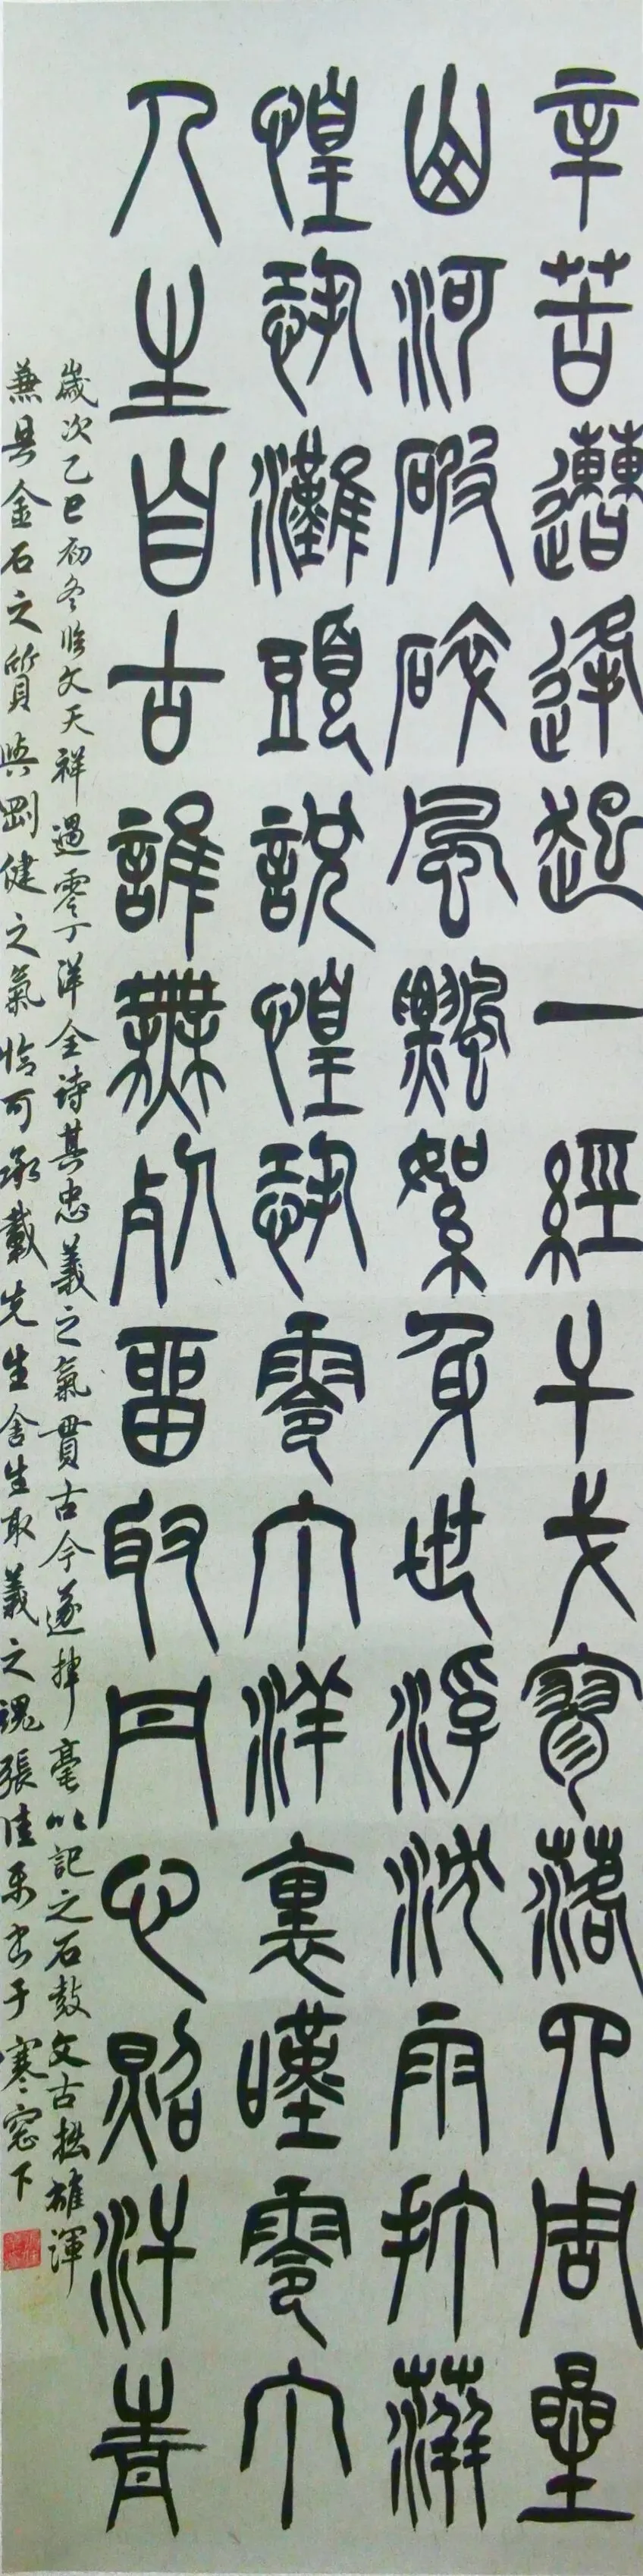 辛苦遭逢起一經干戈寥落四周星
山河破碎風飄絮身世浮沈雨打萍
惶恐灘頭說惶恐零丁洋裏嘆零丁
人生自古誰無死留取丹心照汗青
歲次乙巳初冬臨文天祥過零丁洋全诗其忠義之氣貫古今遂揮毫以記之石鼓文古拙雄渾
兼具金石之質與剛健之氣恰可承載先生舍生取義之魂張佳乐書于寒窓下